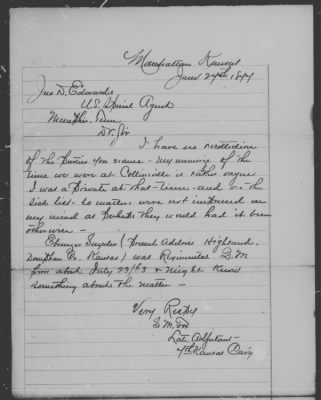 Manhattan Kansas
June 24th 1877
Jno D. Edwards
U.S. Special Agent
Memphis, Tenn.
Dr. Sir
I have no recollection
of the Parties you name - My memory of the
time we were at Collinville is rather vague
I was a Private at that time - and on the
sick list - so matters were not impressed on
my mind as Perhaps they would had it been
otherwise -
Ebenezer Snyder (Present Address Highland,
Doniphan Co. Kansas) was Regimental Q.M
from about July 23/63 & might Know
something about the matter -
Very Respy
Late Adjutant
7th Kansas Cavy